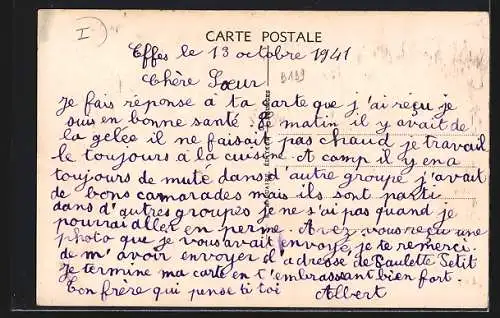 I
CARTE POSTALE
Effes le 13 octobre 1941
B139
Chère Sœur
Je fais réponse à ta carte que j'ai reçu je
suis en bonne santé. Ce matin il y avait de
la gelée il ne faisait pas chaud je travail
le toujours à la cuisine. A camp il y en a
toujours de muté dans d'autre groupe j'avait
de bons camarades mais ils sont parti
dans d'autres groupes je ne s'ai pas quand je
pourrai aller en perme. Avez vous reçu une
photo que je vous avait envoyé je te remerci
de m'avoir envoyer d'adresse de Paulette Petit
Je termine ma carte en t'embrassant bien fort.
Ton frère qui pense ti toi Albert